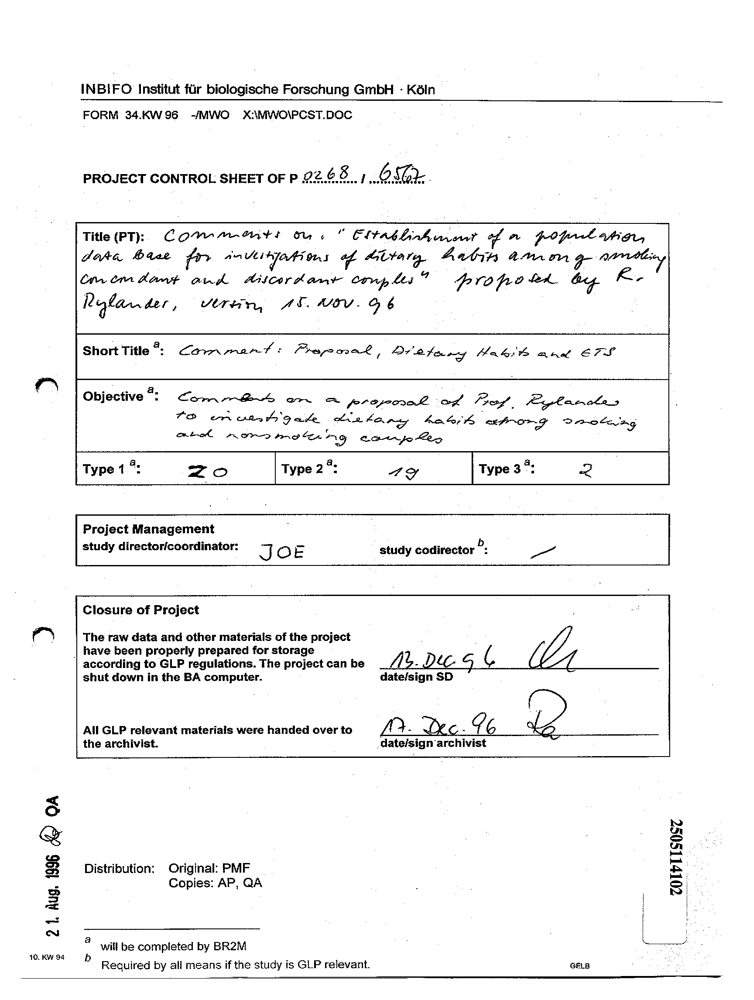 INBIFO Institut für biologische Forschung GmbH · Köln
FORM 34.KW 96 -/MWO X:\MWO\PCST.DOC
PROJECT CONTROL SHEET OF P 0268 / 6567
Title (PT): Comments on: "Establishment of a population
data base for investigations of dietary habits among smoking
concordant and discordant couples" proposed by R.
Rylander, version 15. Nov. 96
Short Title a: Comment: Proposal, Dietary Habits and ETS
Objective a: Comments on a proposal of Prof. Rylander
to investigate dietary habits among smoking
and nonsmoking couples
Type 1 a: 20 Type 2 a: 19 Type 3 a: 2
Project Management
study director/coordinator: JOE study codirector b: /
Closure of Project
The raw data and other materials of the project
have been properly prepared for storage
according to GLP regulations. The project can be
shut down in the BA computer.
13. Dec. 96
date/sign SD
All GLP relevant materials were handed over to
the archivist.
17. Dec. 96
date/sign archivist
21. Aug. 1996 QA
2505114102
Distribution: Original: PMF
Copies: AP, QA
a will be completed by BR2M
b Required by all means if the study is GLP relevant.
10. KW 94
GELB